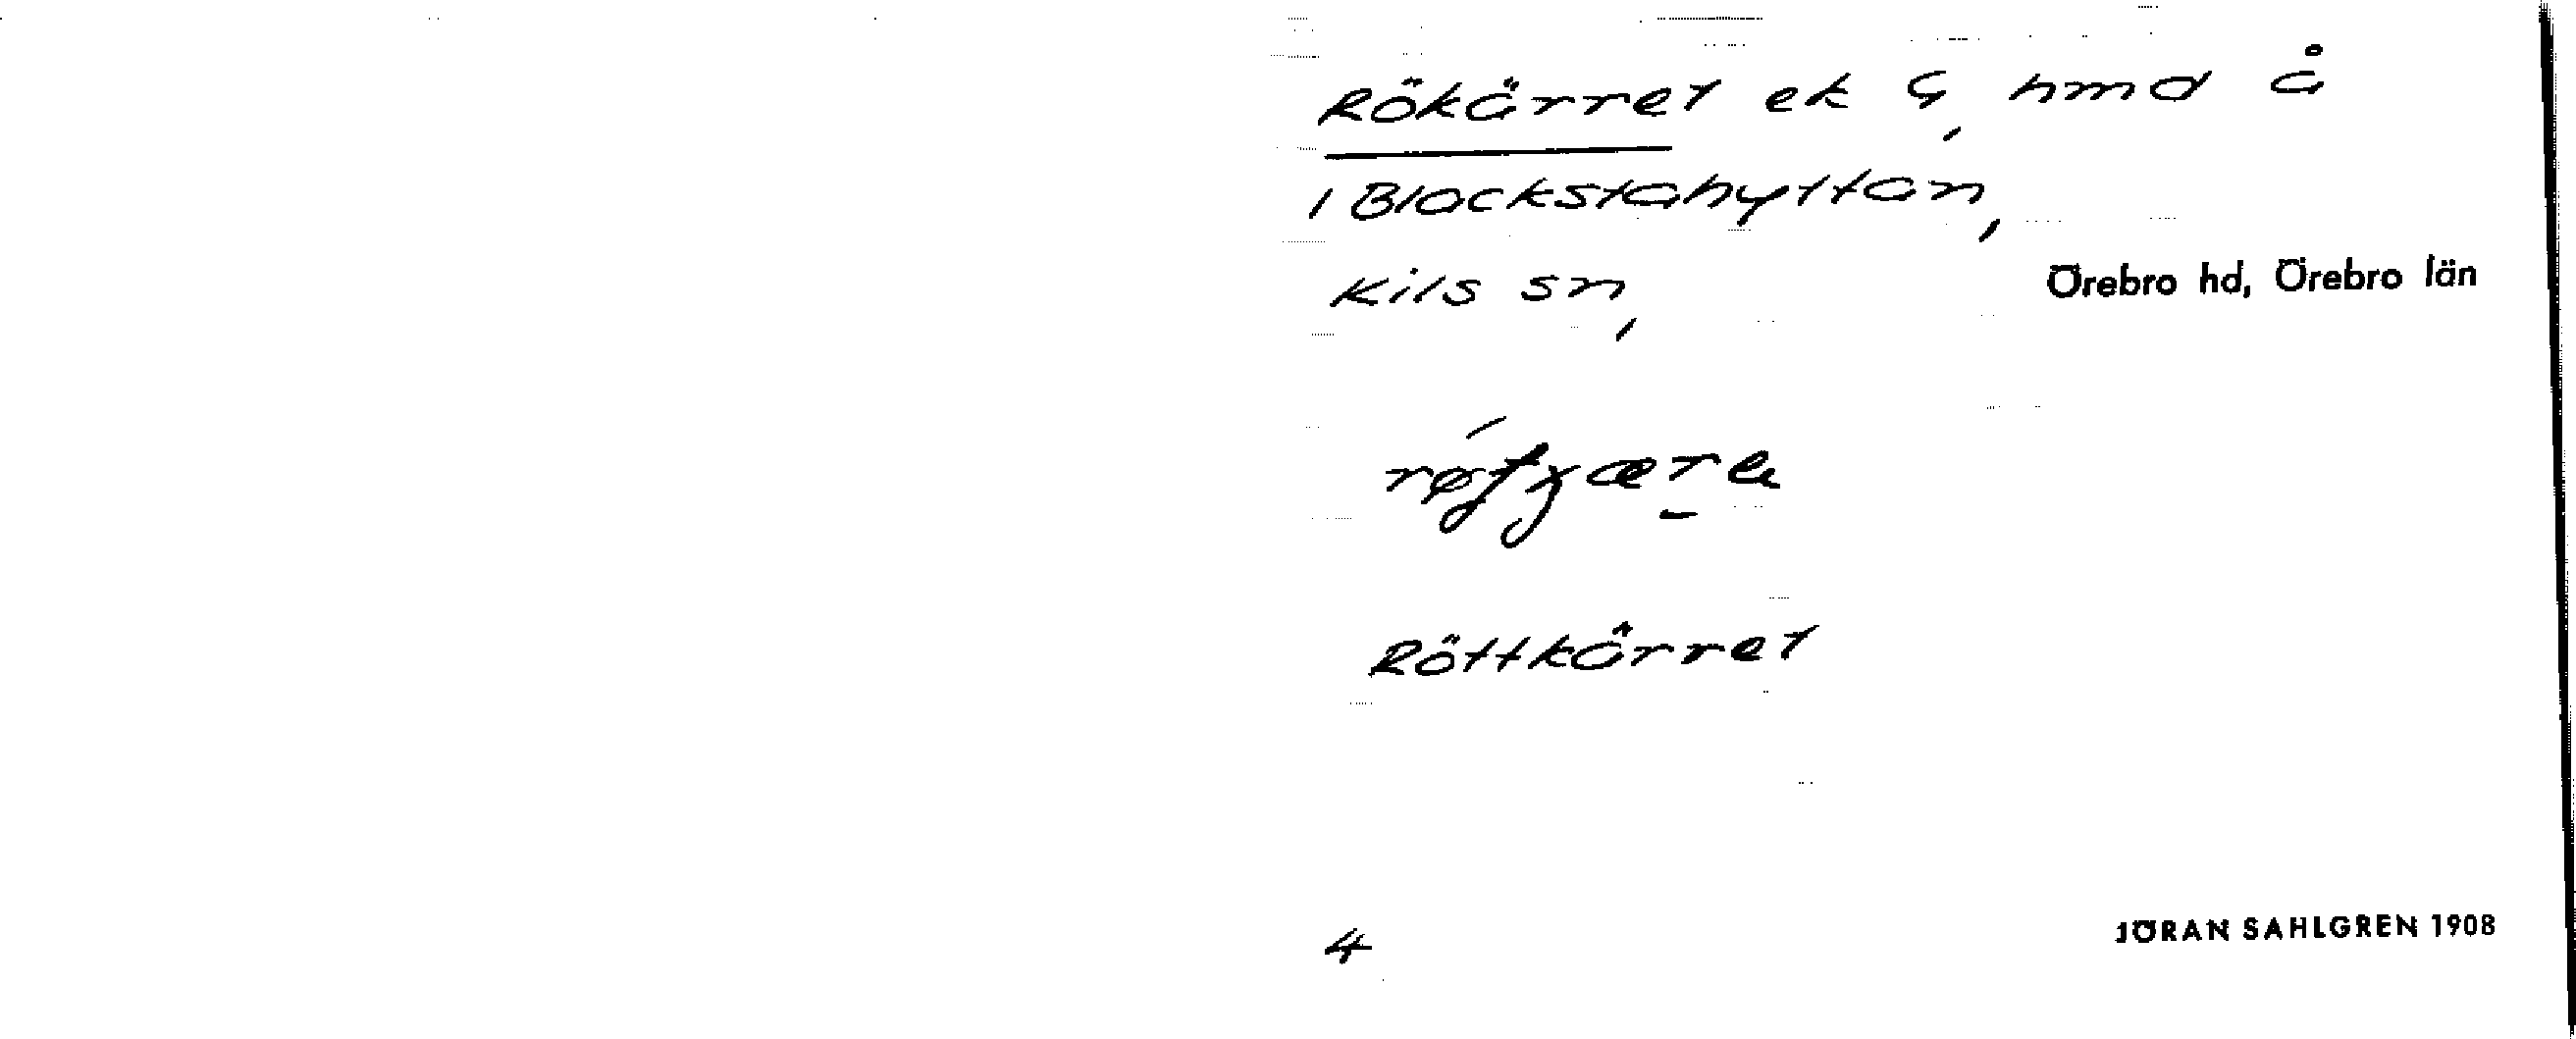 Rökärret ek G, hmd å
1 Blackstahyttan,
Kils sn,
Örebro hd, Örebro län
Röttkärret
4
JÖRAN SAHLGREN 1908